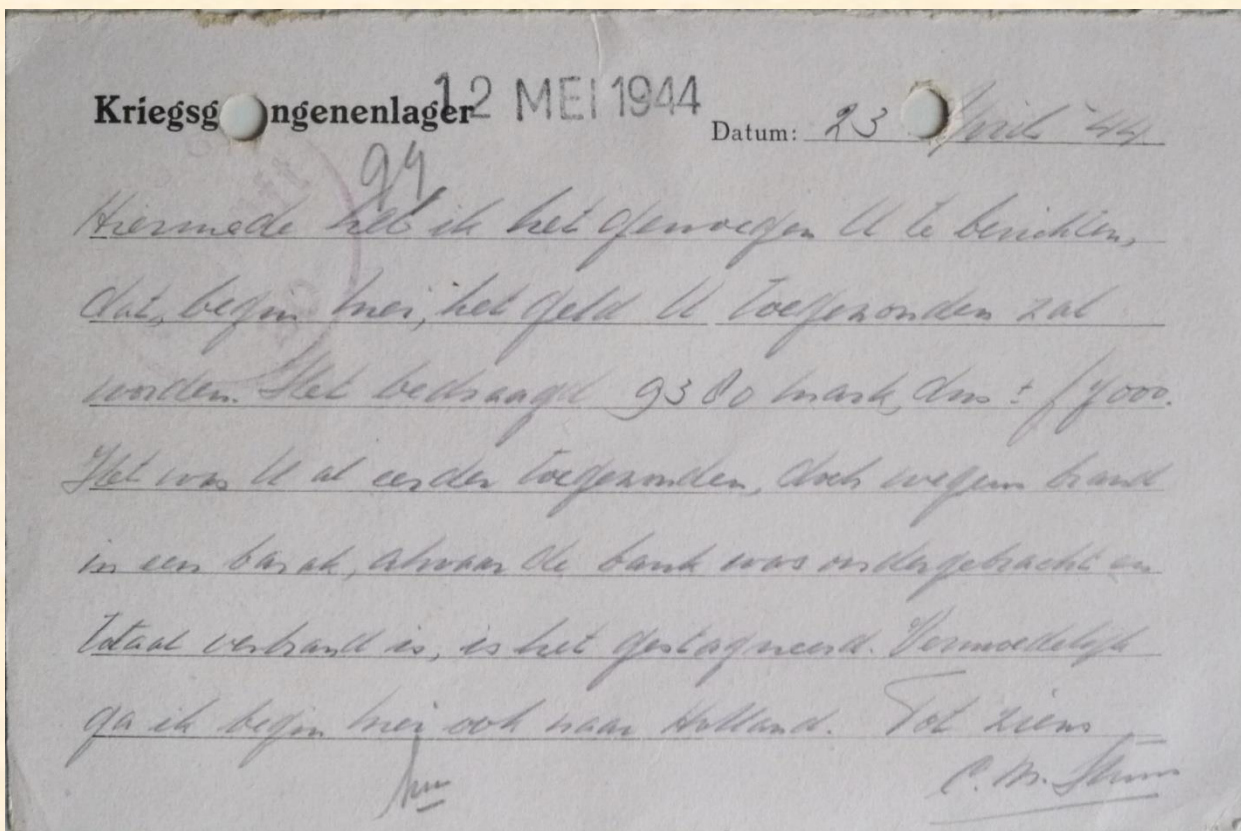 Kriegsg ngenenlager 12 MEI 1944 Datum: 23 April '44
94
Hiermede heb ik het genoegen U te berichten,
dat, begin Mei, het geld U toegezonden zal
worden. Het bedraagd 9380 mark, dus ± f 7000.
Het was U al eerder toegezonden, doch wegens brand
in een barak, alwaar de bank was ondergebracht en
totaal verbrand is, is het gestagneerd. Vermoedelijk
ga ik begin Mei ook naar Holland. Tot ziens
C. M.